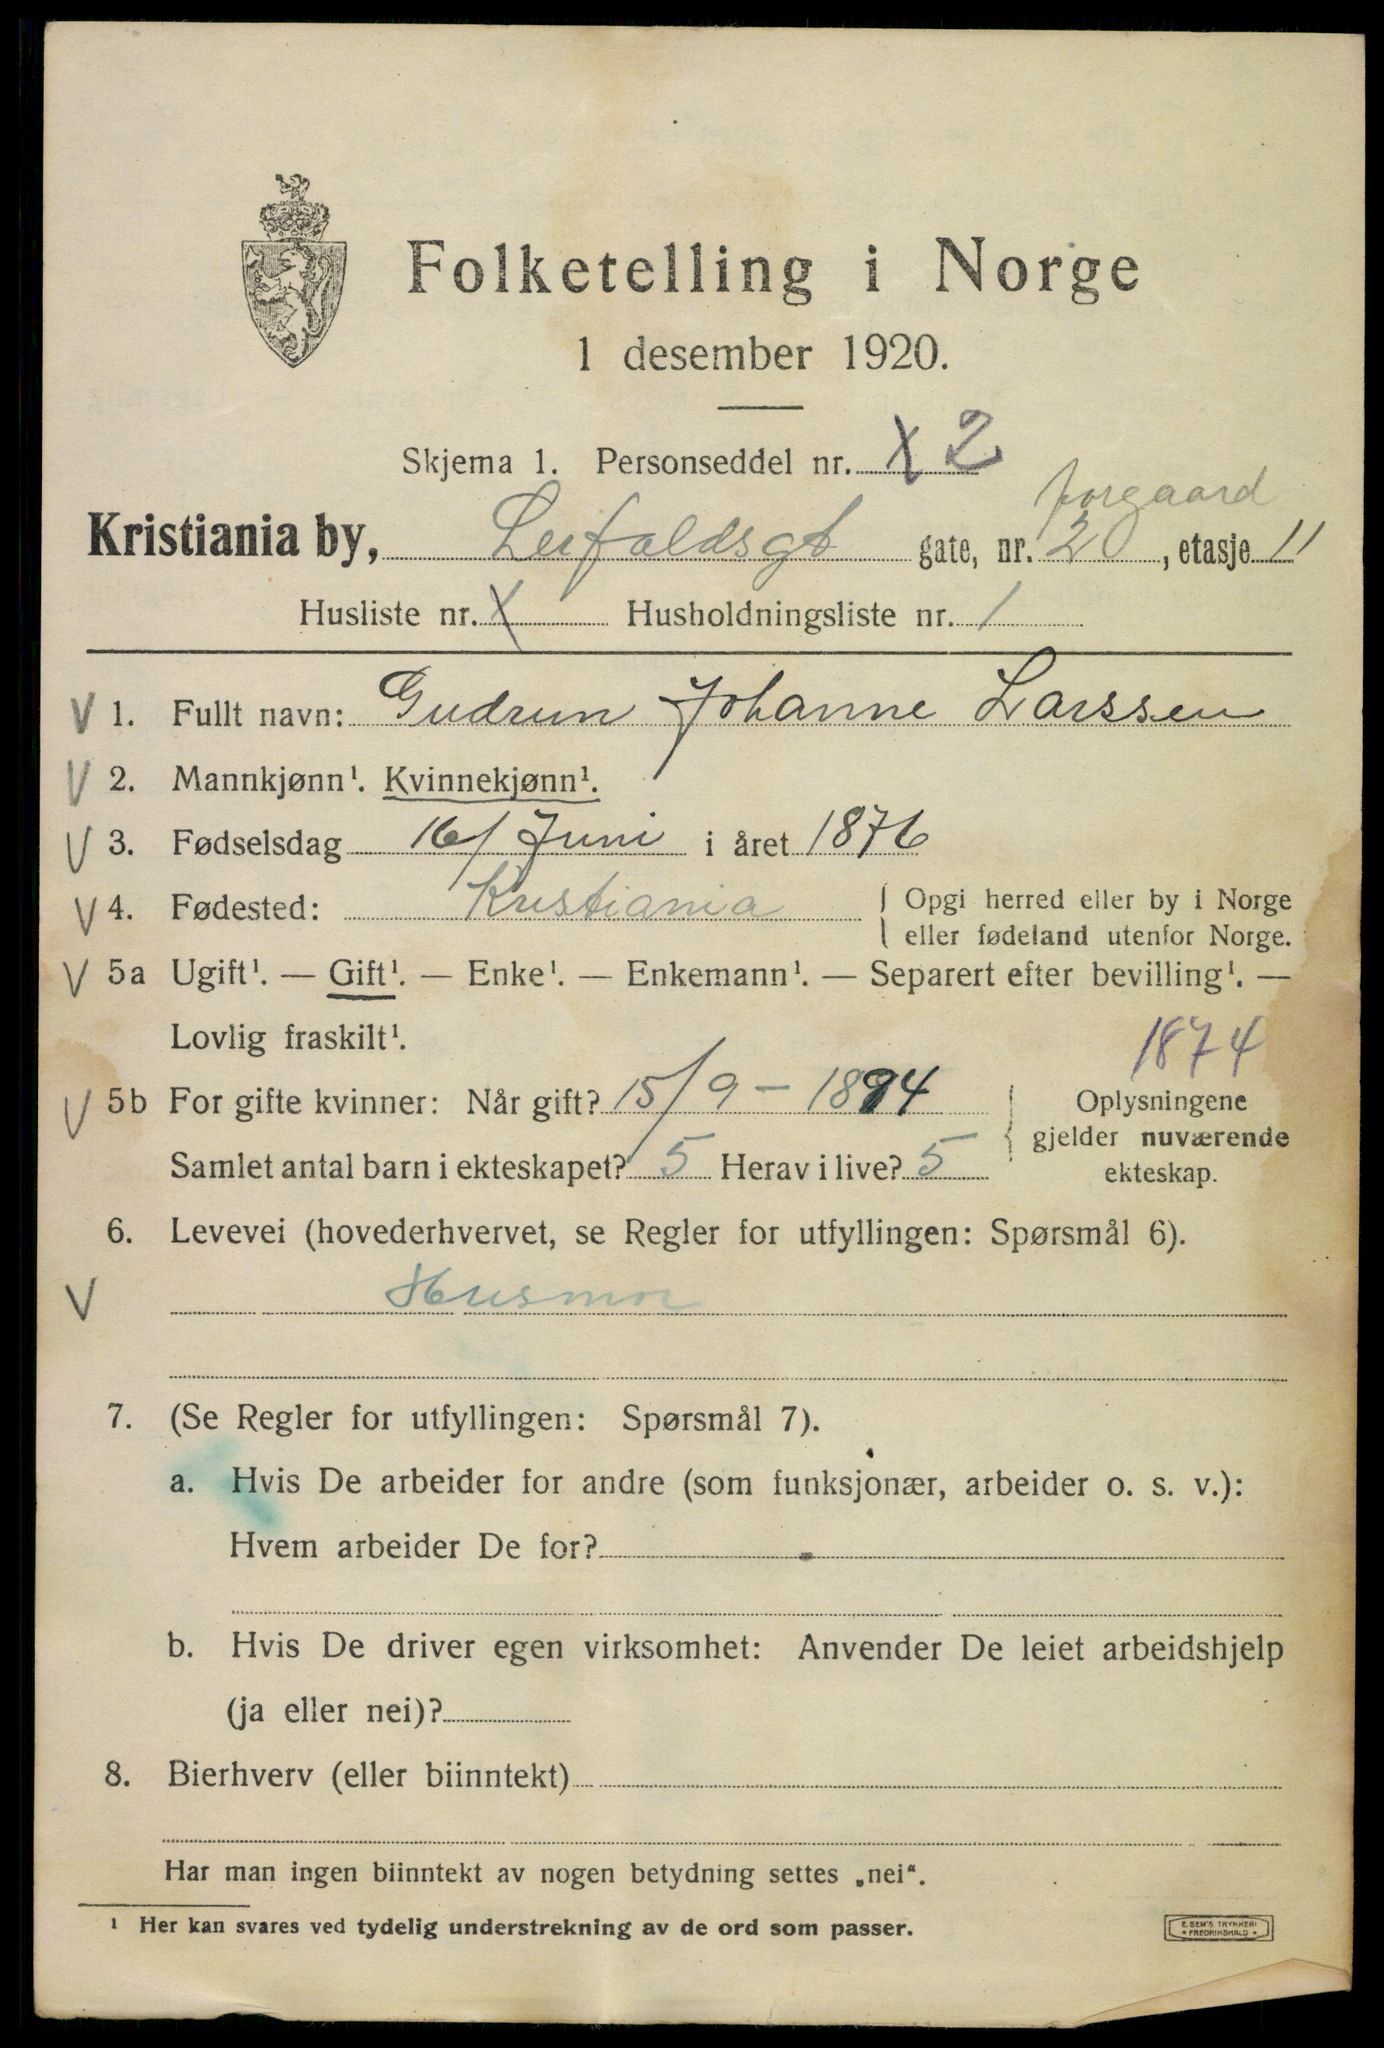 Folketelling i Norge
1 desember 1920.
Skjema 1. Personseddel nr. X 2
forgaard
Kristiania by, Leifaldsgt gate, nr. 20, etasje 11
Husliste nr. X Husholdningsliste nr. 1
V 1. Fullt navn: Gudrun Johanne Larssen
V 2. Mannkjønn¹. Kvinnekjønn¹.
V 3. Fødselsdag 16/ Juni i året 1876
V 4. Fødested: Kristiania { Opgi herred eller by i Norge
eller fødeland utenfor Norge.
V 5a Ugift¹. — Gift¹. — Enke¹. — Enkemann¹. — Separert efter bevilling¹. —
Lovlig fraskilt¹.
1874
V 5b For gifte kvinner: Når gift? 15/9 - 1894 } Oplysningene
gjelder nuværende
Samlet antal barn i ekteskapet? 5 Herav i live? 5 ekteskap.
6. Levevei (hovederhvervet, se Regler for utfyllingen: Spørsmål 6).
V Husmor
7. (Se Regler for utfyllingen: Spørsmål 7).
a. Hvis De arbeider for andre (som funksjonær, arbeider o. s. v.):
Hvem arbeider De for?
b. Hvis De driver egen virksomhet: Anvender De leiet arbeidshjelp
(ja eller nei)?
8. Bierhverv (eller biinntekt)
Har man ingen biinntekt av nogen betydning settes „nei“.
¹ Her kan svares ved tydelig understrekning av de ord som passer.
E. SEM'S TRYKKERI
• FREDRIKSHALD •